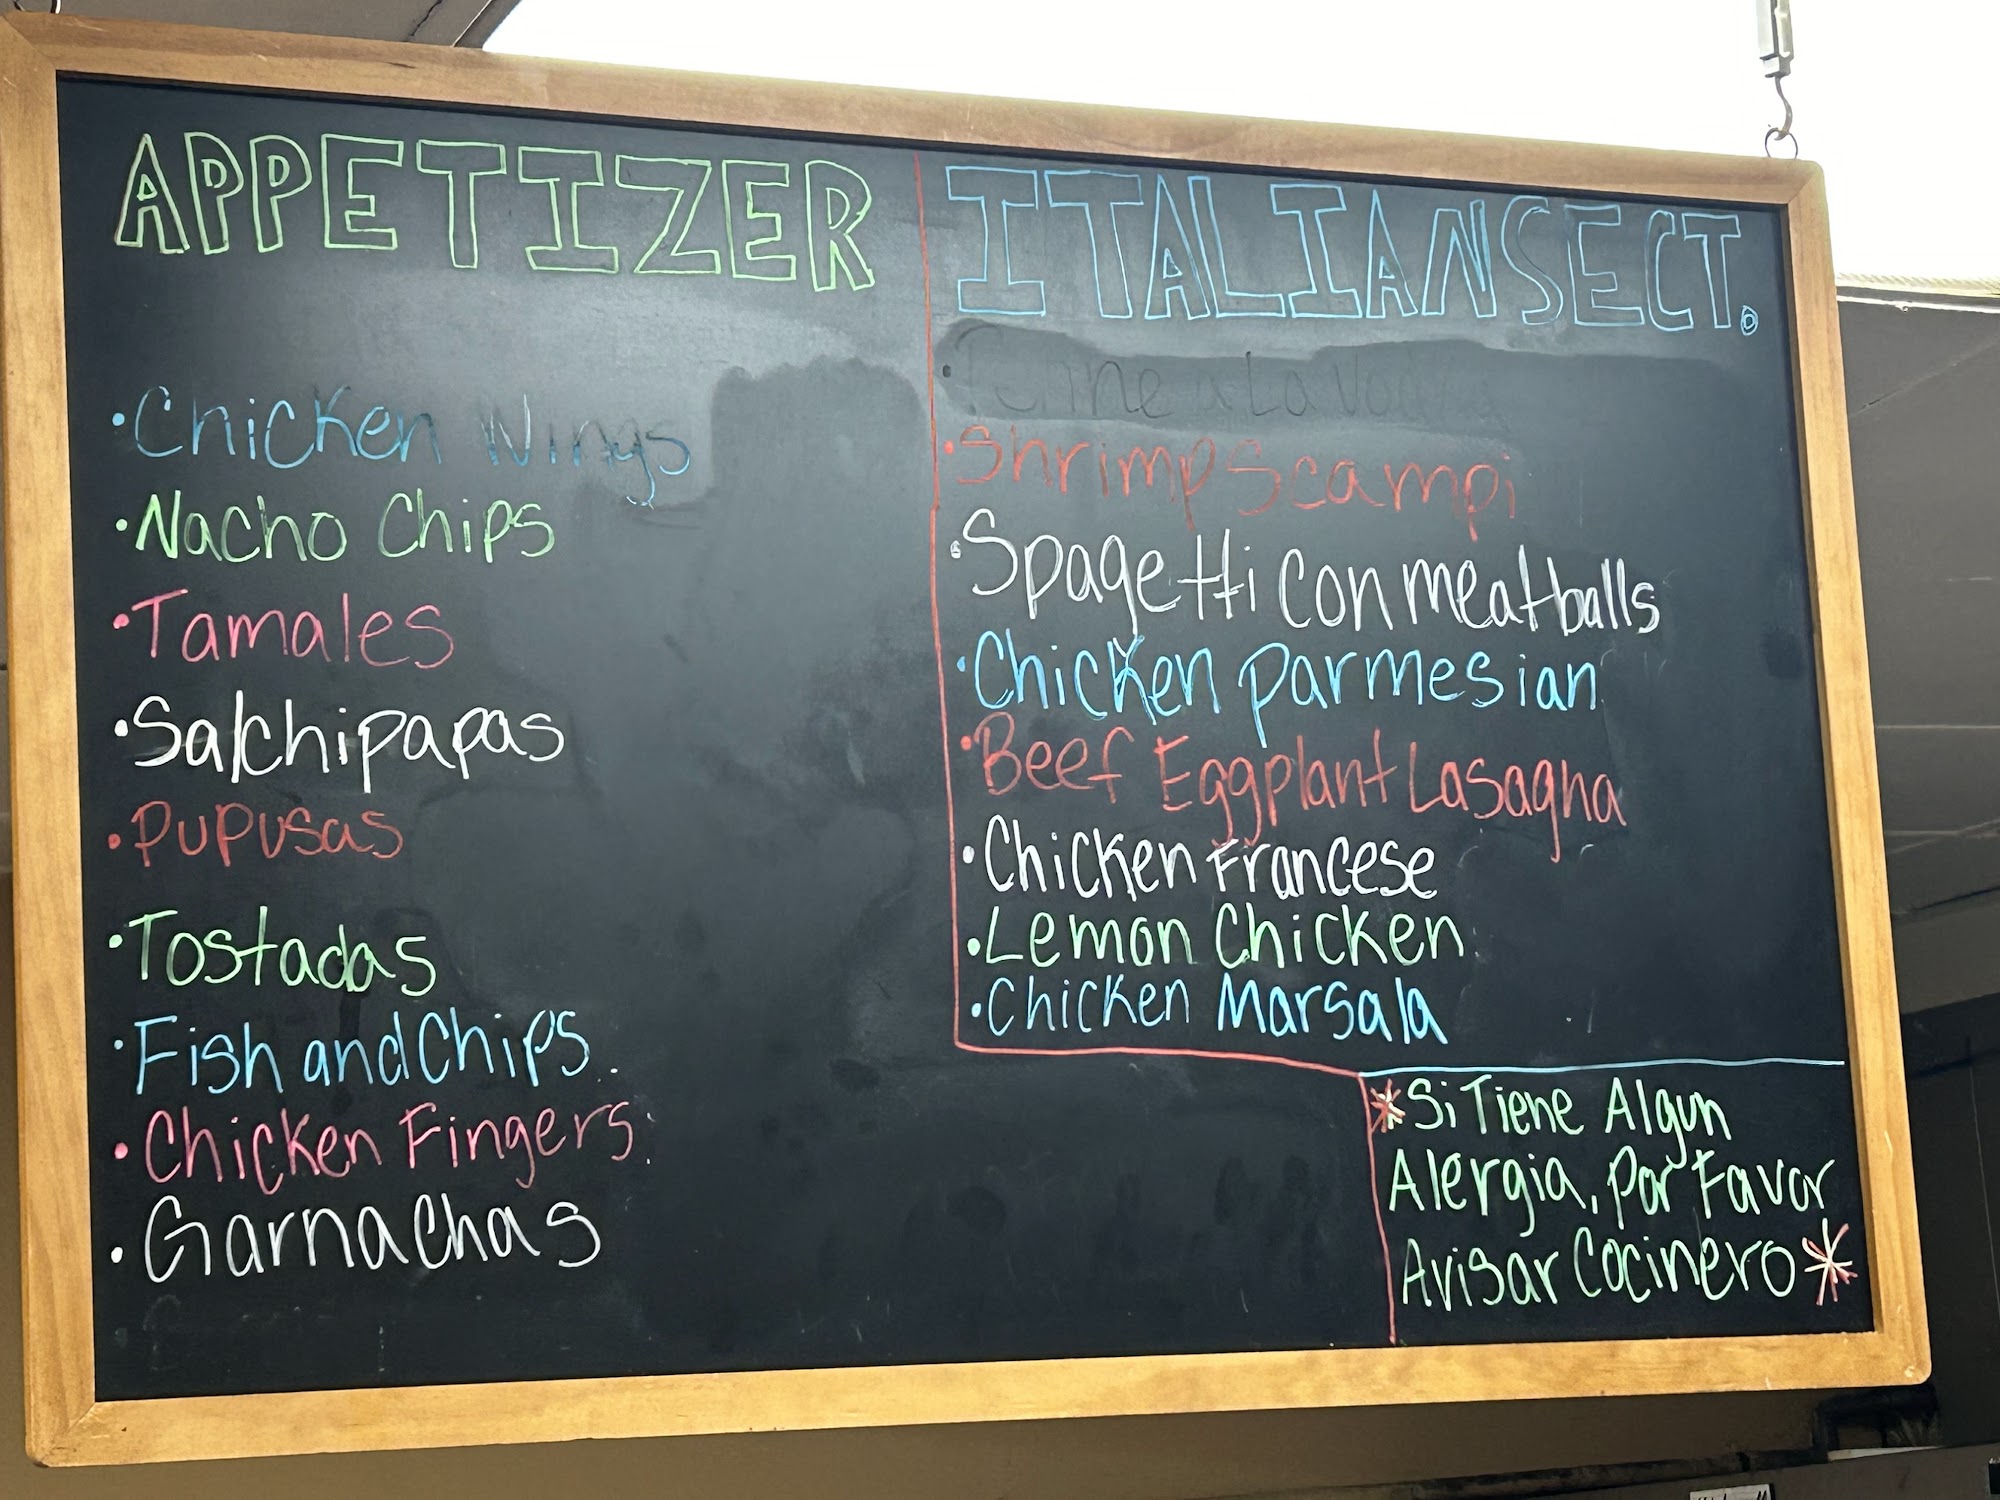 APPETIZER
• Chicken Wings
• Nacho Chips
• Tamales
• Salchipapas
• Pupusas
• Tostadas
• Fish and Chips
• Chicken Fingers
• Garnachas
ITALIAN SECT.
• a La
• Shrimp Scampi
• Spagetti con meatballs
• Chicken parmesian
• Beef Eggplant Lasagna
• Chicken Francese
• Lemon Chicken
• Chicken Marsala
*Si Tiene Algun
Alergia, Por Favor
Avisar Cocinero*